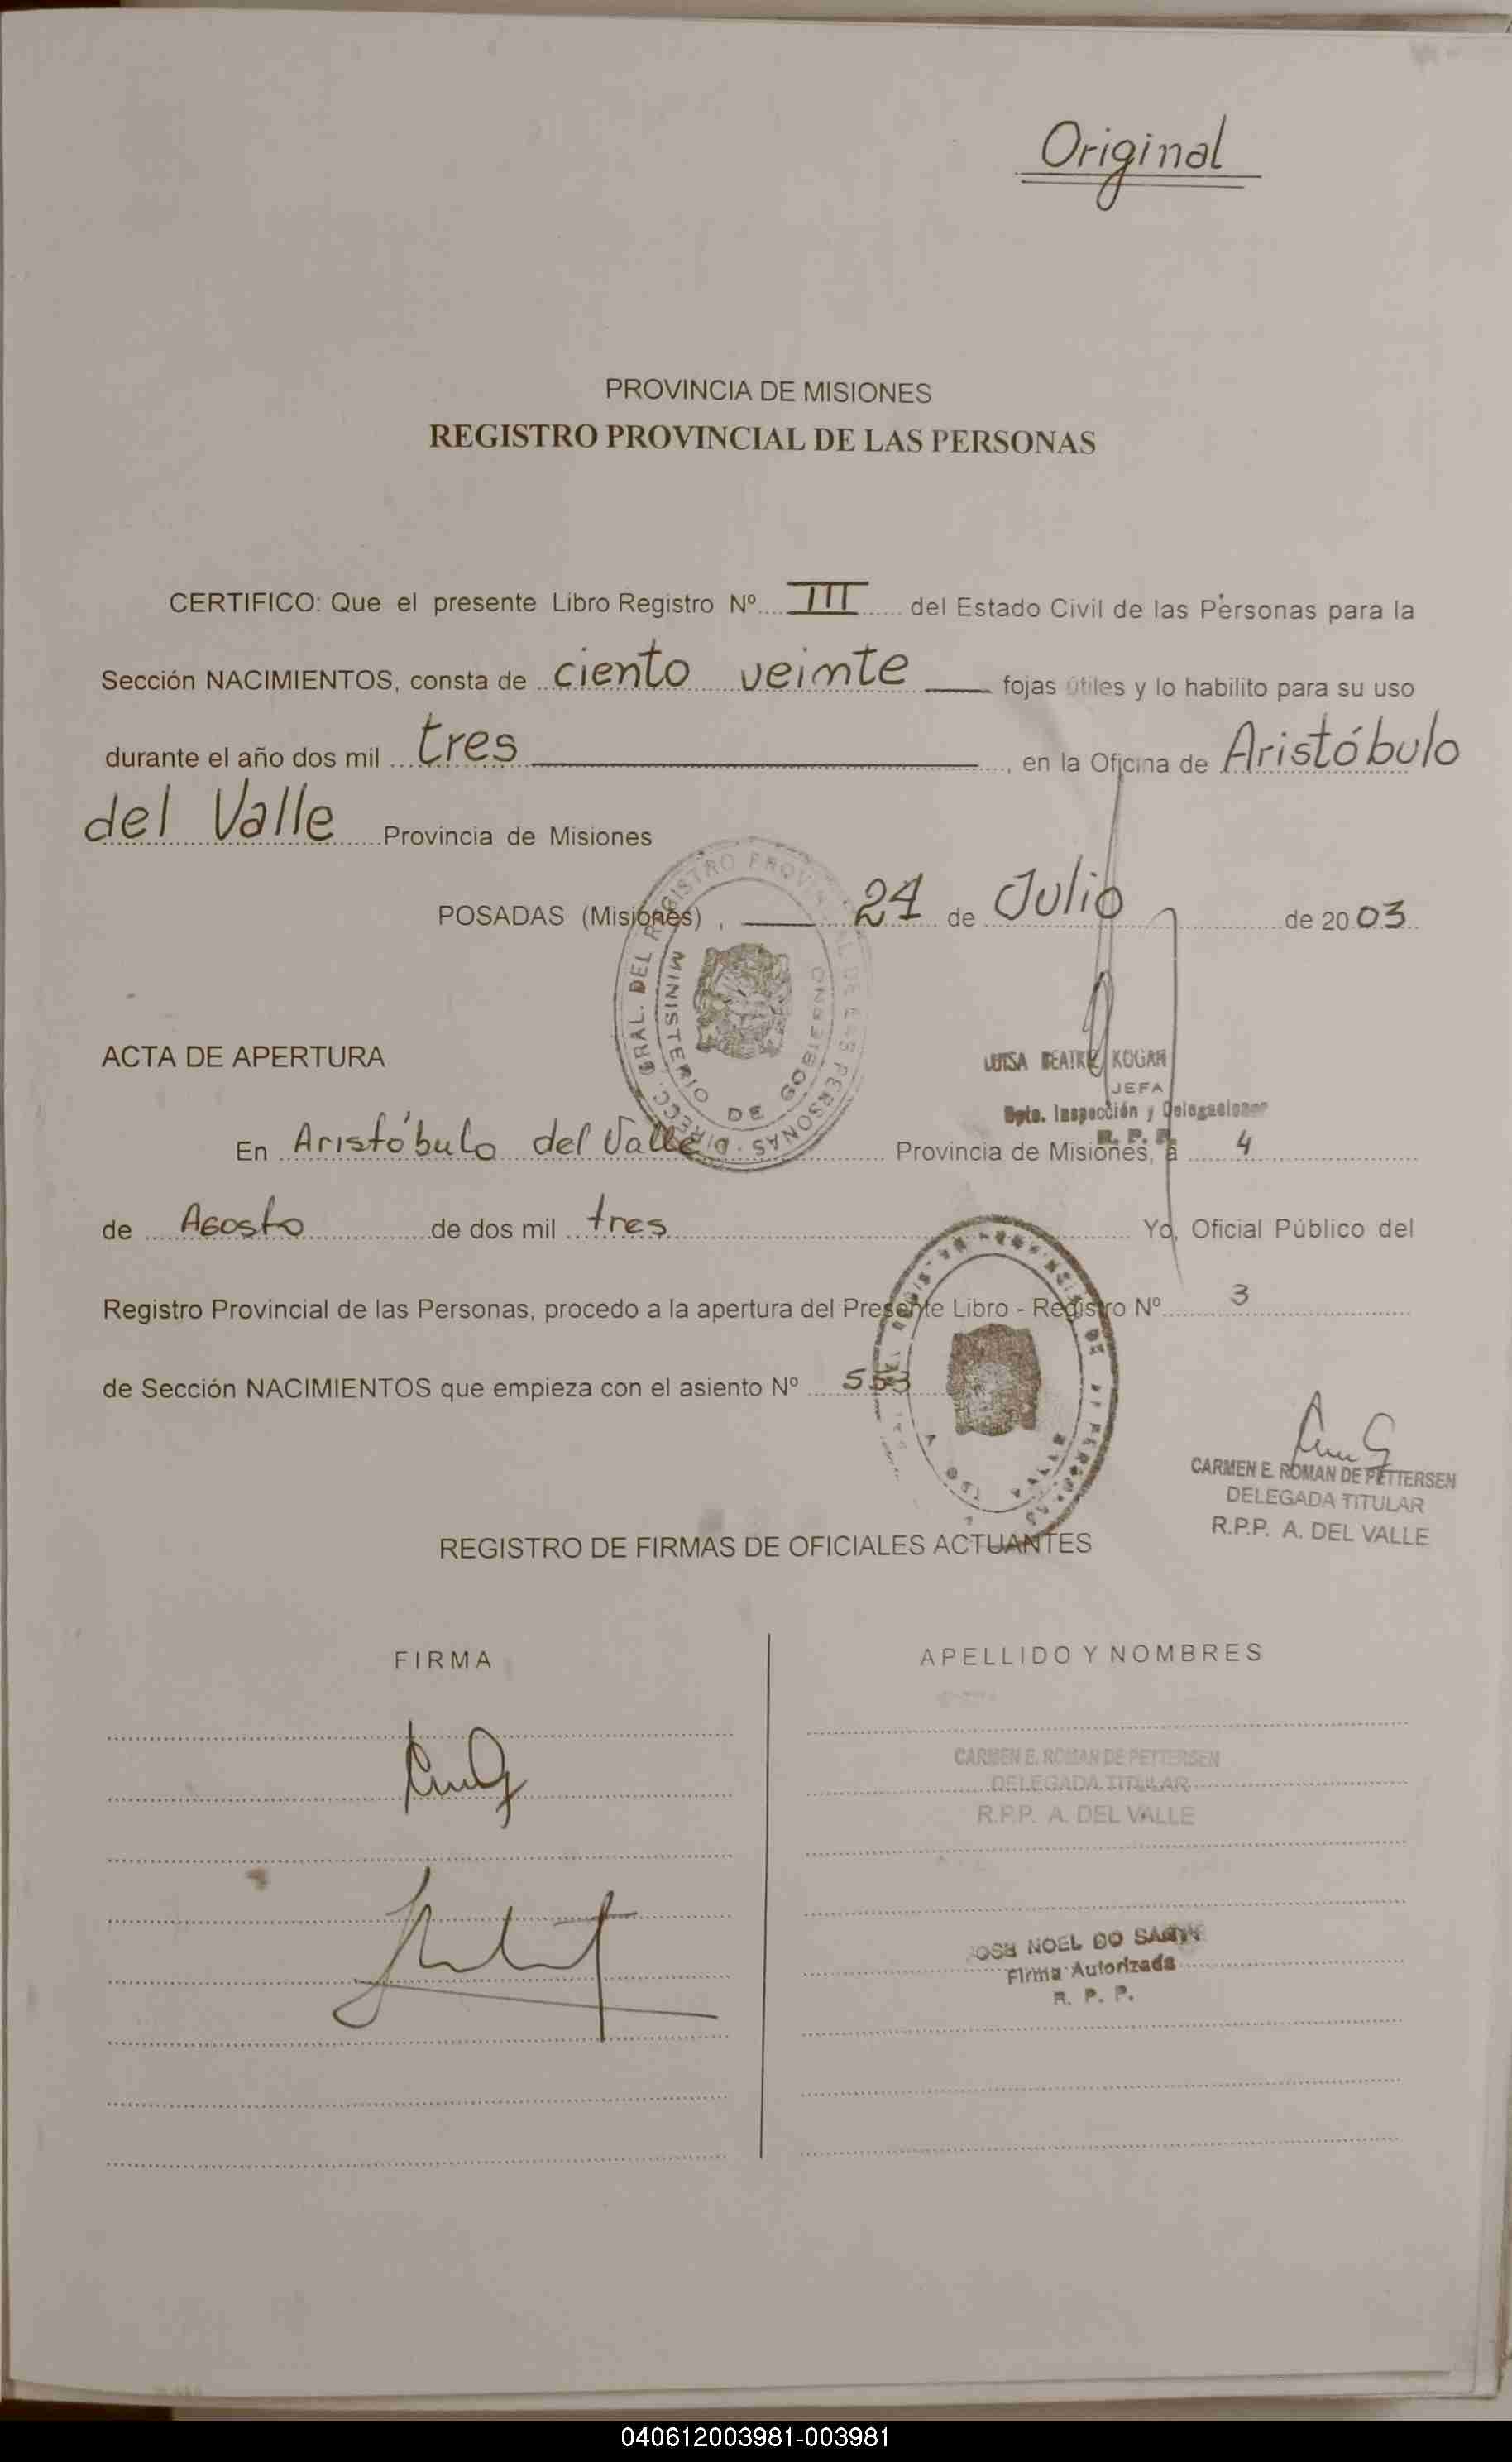 Original
PROVINCIA DE MISIONES
REGISTRO PROVINCIAL DE LAS PERSONAS
CERTIFICO: Que el presente Libro Registro Nº III del Estado Civil de las Personas para la
Sección NACIMIENTOS, consta de ciento veinte fojas útiles y lo habilito para su uso
durante el año dos mil tres, en la Oficina de Aristóbulo
del Valle Provincia de Misiones
POSADAS (Misiones), 24 de Julio de 2003
DIRECC. GRAL. DEL REGISTRO PROVINCIAL DE LAS PERSONAS
MINISTERIO DE GOBIERNO
LUISA BEATRIZ KOGAN
JEFA
Dpto. Inspección y Delegaciones
R. P. P.
ACTA DE APERTURA
En Aristóbulo del Valle Provincia de Misiones, a 4
de Agosto de dos mil tres Yo, Oficial Público del
Registro Provincial de las Personas, procedo a la apertura del Presente Libro - Registro Nº 3
de Sección NACIMIENTOS que empieza con el asiento Nº 553
CARMEN E. ROMAN DE PETTERSEN
DELEGADA TITULAR
R.P.P. A. DEL VALLE
REGISTRO DE FIRMAS DE OFICIALES ACTUANTES
FIRMA APELLIDO Y NOMBRES
CARMEN E. ROMAN DE PETTERSEN
DELEGADA TITULAR
R.P.P. A. DEL VALLE
NOEL DO
Firma Autorizada
R. P. P.
040612003981-003981